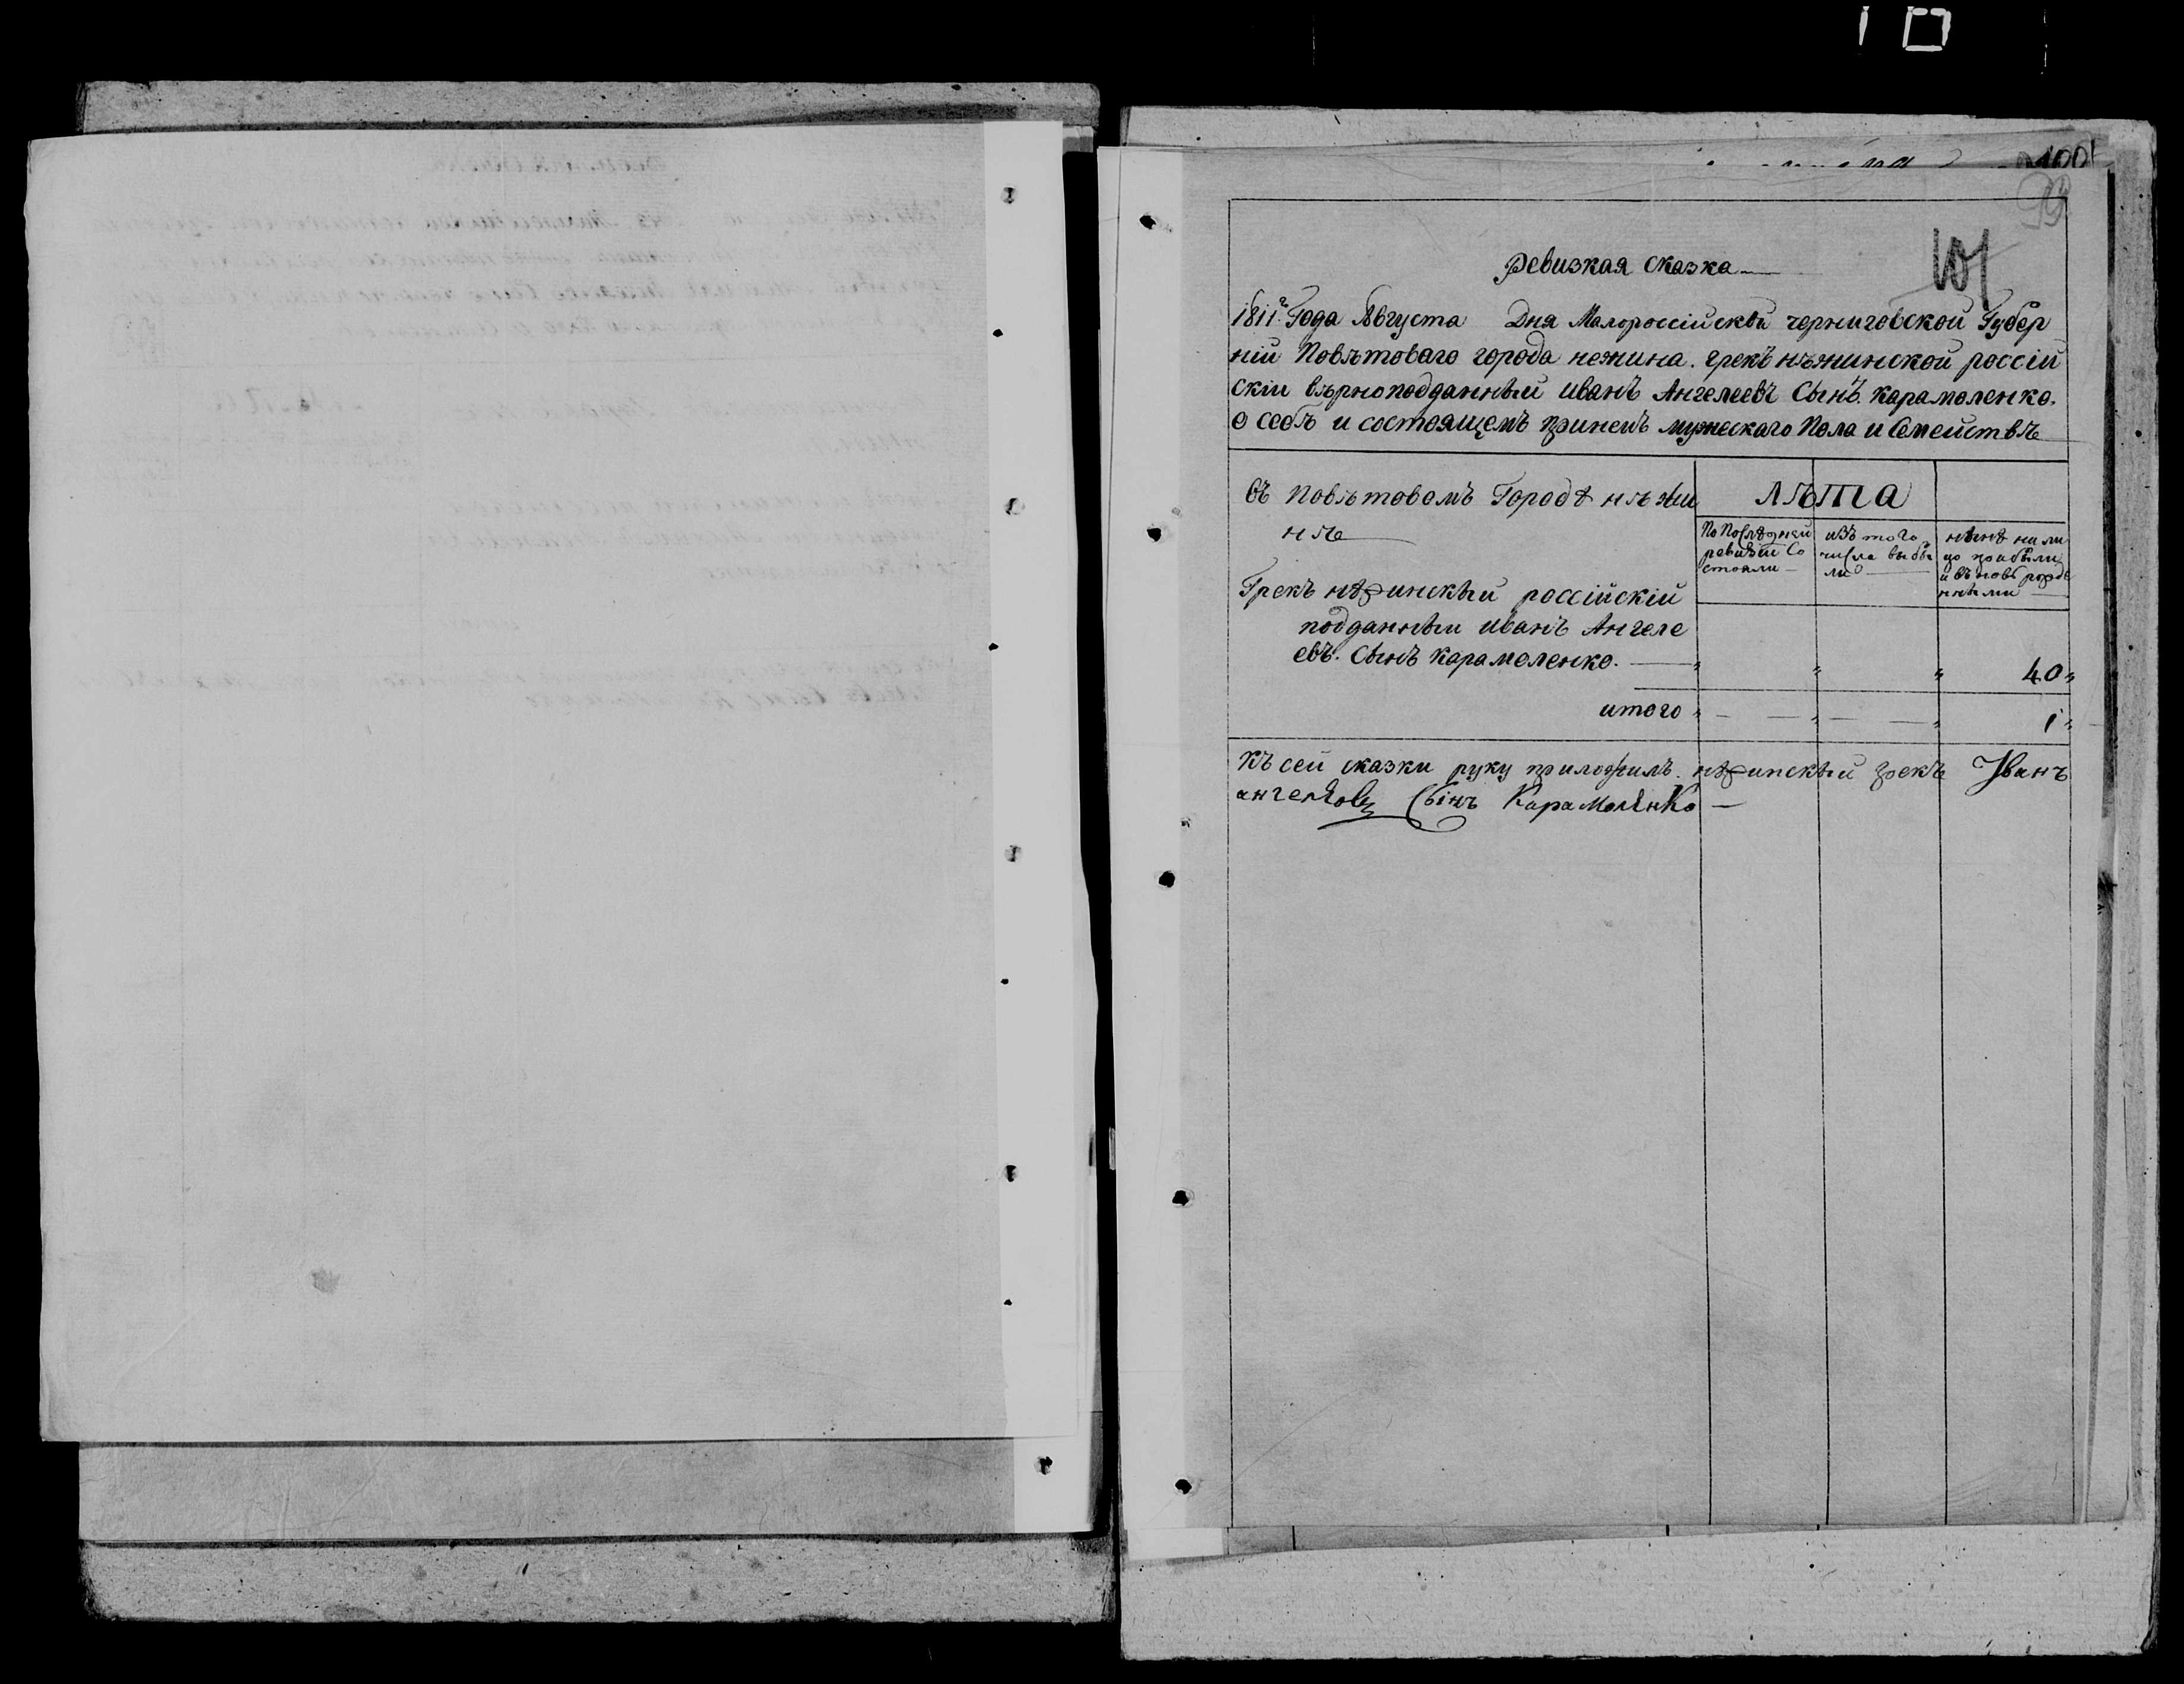 101
Ревизкая сказка
1811г. Года Августа Дня Малороссійской черниговской Губер
ніи Повѣтоваго города нежина. грекъ нѣжинской россій
скіи вѣрноподданный иванъ Ангелеевъ Сынъ. карамоленко.
о себѣ и состоящемъ принемъ мужескаго Пола и Семействѣ
въ повѣтовомъ Городѣ нѣжи
нѣ
лѣта
По Послѣдней
ревизіи Со
стояли
изъ того
числа выбы
ли
Грекъ нѣжинскый россійскій
подданный иванъ Ангеле
евъ. Сынъ карамоленко. 40
итого 1
Къ сей сказки руку приложилъ. нѣжинскый грекъ Иванъ
Сынъ Карамоленко